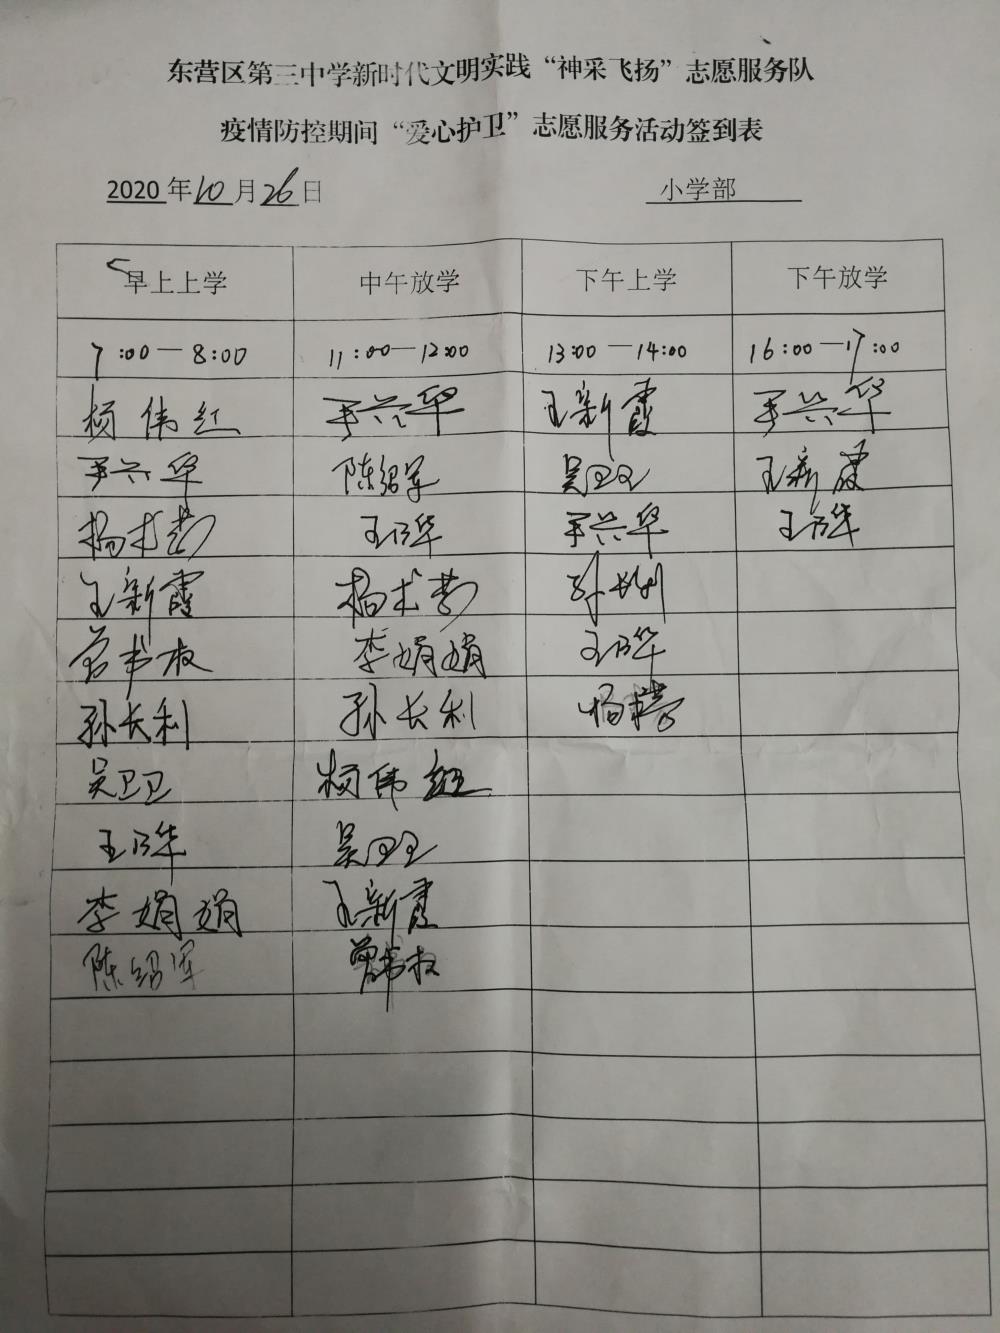 东营区第三中学新时代文明实践“神采飞扬”志愿服务队
疫情防控期间“爱心护卫”志愿服务活动签到表
2020年10月26日 小学部
早上上学 中午放学 下午上学 下午放学
7:00—8:00 11:00—12:00 13:00—14:00 16:00—17:00
杨伟红 尹兴华 王新霞 尹兴华
尹兴华 陈绍军 吴卫卫 王新霞
杨术芳 王乃华 尹兴华 王乃华
王新霞 杨术芳 孙长利
曾书枝 李娟娟 王乃华
孙长利 孙长利
吴卫卫 杨伟红
王乃华 吴卫卫
李娟娟 王新霞
陈绍军 曾书枝